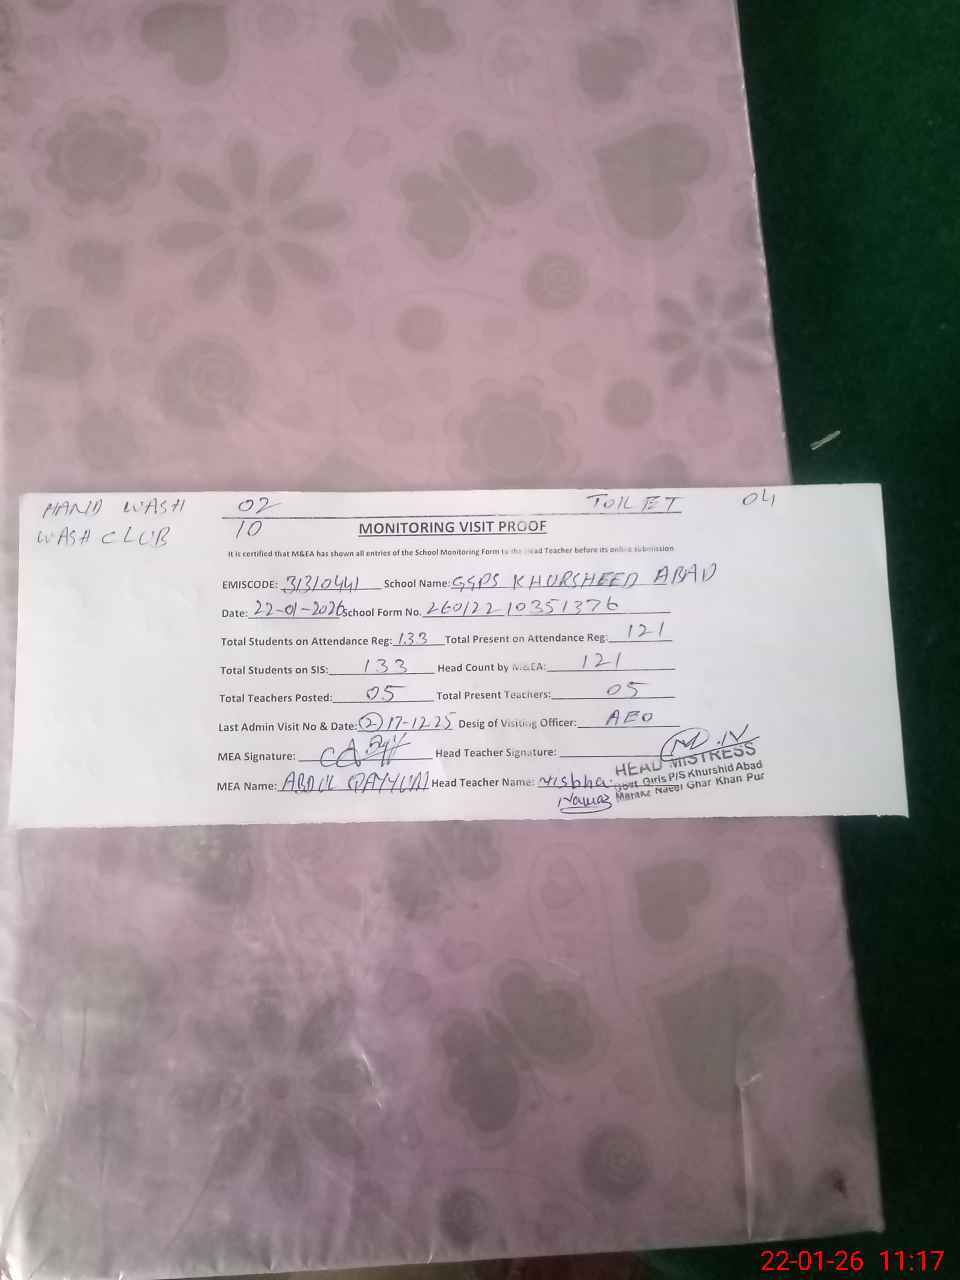 HAND WASH 02 TOILET 04
WASH CLUB 10
MONITORING VISIT PROOF
It is certified that M&EA has shown all entries of the School Monitoring Form to the Head Teacher before its online submission
EMISCODE: 31310441 School Name: GGPS KHURSHEED ABAD
Date: 22-01-2026 School Form No. 26012210351376
Total Students on Attendance Reg: 133 Total Present on Attendance Reg: 121
Total Students on SIS: 133 Head Count by M&EA: 121
Total Teachers Posted: 05 Total Present Teachers: 05
Last Admin Visit No & Date: (2) 17-12-25 Desig of Visiting Officer: AEO
MEA Signature: Head Teacher Signature:
MEA Name: ABDUL QAYYUM Head Teacher Name: Misbha
Nawaz
HEAD MISTRESS
Govt. Girls P/S Khurshid Abad
Marakz Naegi Ghar Khan Pur
22-01-26 11:17